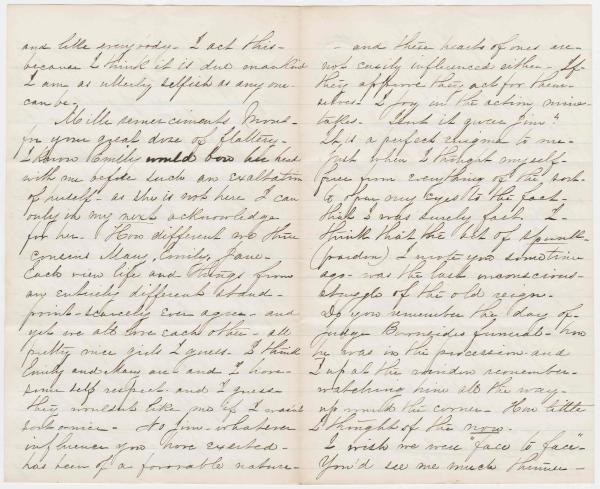 and like everybody - I act this -
because I think it is due mankind
I am as utterly selfish as any one
can be.
Mille remerciements Mons -
for your great dose of flattery -
I know Emily would bow her head
with me before such an exaltation
of herself - as she is not here I can
only in my next acknowledge
for her. How different we three
cousins Mary, Emily, Jane -
Each view life and things from
an entirely different stand -
point - scarcely ever agree - and
yet we all love each other - all
pretty nice girls I guess - I think
Emily and Mary are and I have
some self respect - and I guess
they wouldn't like me if I wasn't
sort o nice - No Jim - whatever
influence you have exerted -
has been of a favorable nature -
- and these hearts of ours are
not easily influenced either - If
they approve they act for them -
selves - I joy in the action mine
takes. Isn't it queer Jim?
It is a perfect enigma to me -
Just when I thought myself -
free from everything of the sort -
to open my eyes to the fact -
that I was surely fast. I -
think that the bit of
(pardon) I wrote you sometime
ago - was the last unconscious -
struggle of the old reign -
Do you remember the day of -
Judge Burnsides funeral - how
he was in the procession and
I up at the window remember -
watching him all the way -
up round the corner - How little
I thought of the now.
I wish we were "face to face" -
You'd see me much thinner -